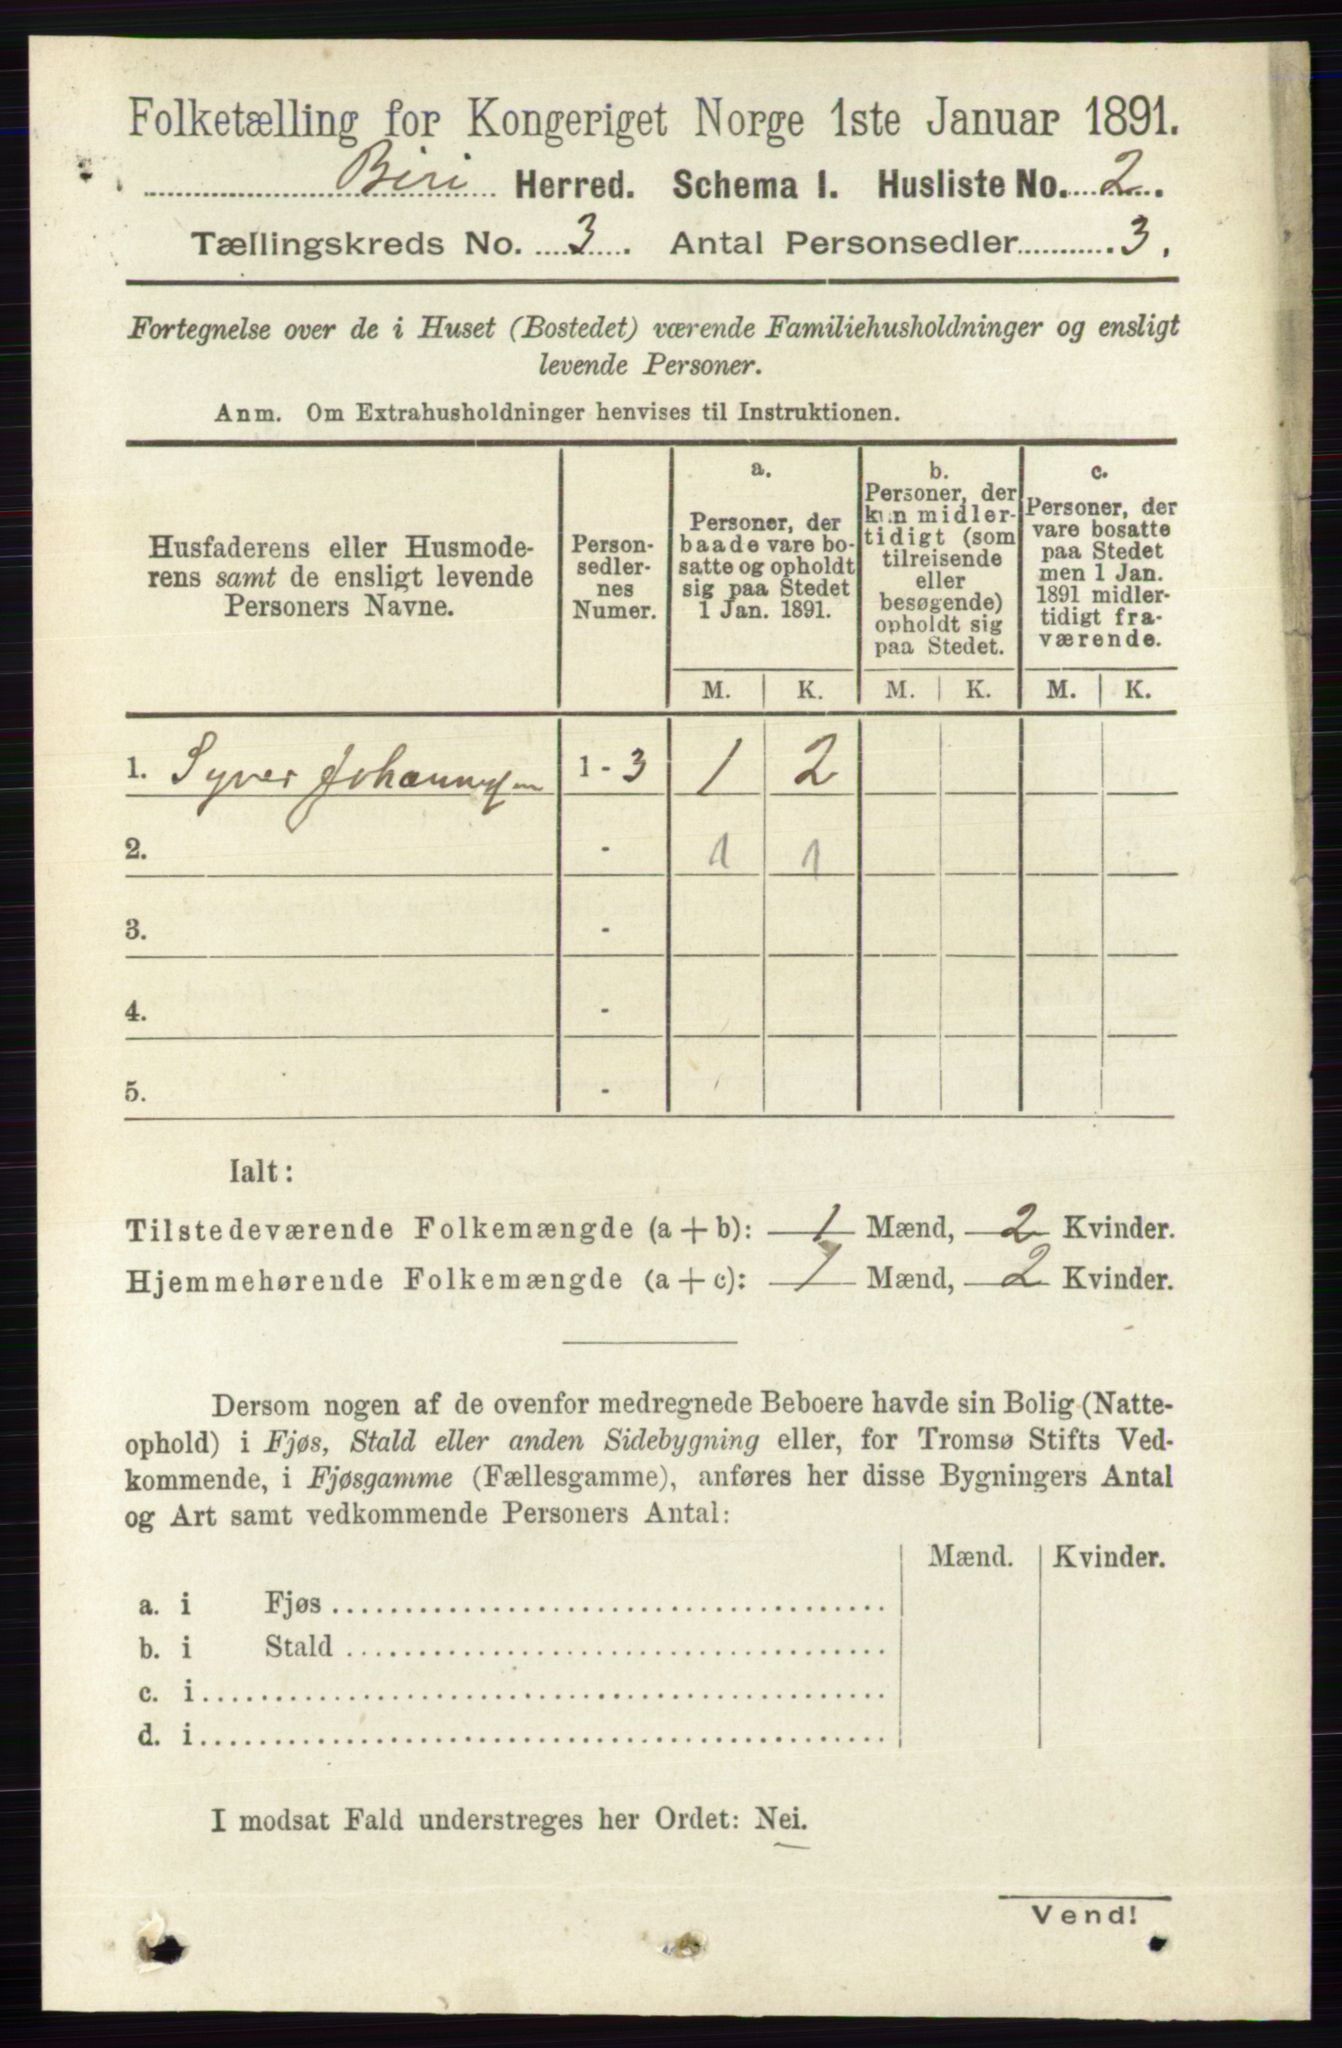 Folketælling for Kongeriget Norge 1ste Januar 1891.
Biri Herred. Schema I. Husliste No. 2.
Tællingskreds No. 3. Antal Personsedler 3.
Fortegnelse over de i Huset (Bostedet) værende Familiehusholdninger og ensligt
levende Personer.
Anm. Om Extrahusholdninger henvises til Instruktionen.
Husfaderens eller Husmode-
rens samt de ensligt levende
Personers Navne.
Person-
sedler-
nes
Numer.
a.
Personer, der
baade vare bo-
satte og opholdt
sig paa Stedet
1 Jan. 1891.
b.
Personer, der
kun midler-
tidigt (som
tilreisende
eller
besøgende)
opholdt sig
paa Stedet.
c.
Personer, der
vare bosatte
paa Stedet
men 1 Jan.
1891 midler-
tidigt fra-
værende.
M. K. M. K. M. K.
1. Syver Johannesen 1 - 3 1 2
2. - 1 1
3. -
4. -
5. -
Ialt:
Tilstedeværende Folkemængde (a + b): 1 Mænd, 2 Kvinder.
Hjemmehørende Folkemængde (a + c): 1 Mænd, 2 Kvinder.
Dersom nogen af de ovenfor medregnede Beboere havde sin Bolig (Natte-
ophold) i Fjøs, Stald eller anden Sidebygning eller, for Tromsø Stifts Ved-
kommende, i Fjøsgamme (Fællesgamme), anføres her disse Bygningers Antal
og Art samt vedkommende Personers Antal:
Mænd. Kvinder.
a. i Fjøs
b. i Stald
c. i
d. i
I modsat Fald understreges her Ordet: Nei.
Vend!